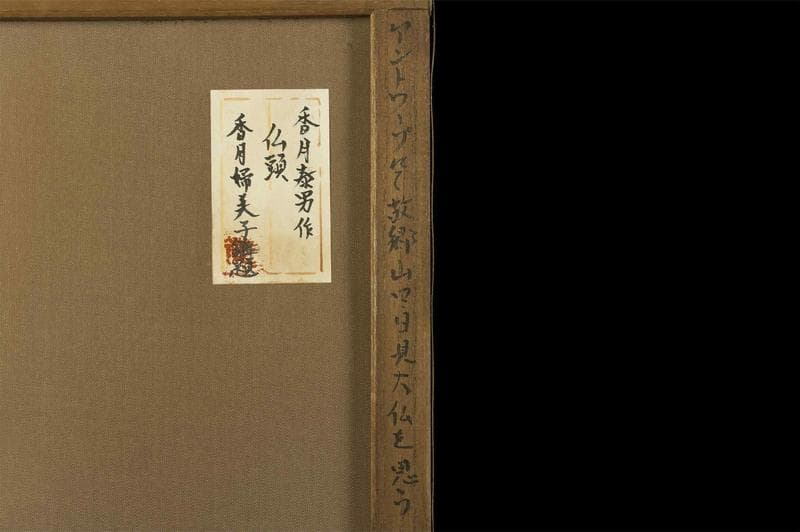 アントワープにて故郷山口日見大仏を思う
香月泰男作
仏頭
香月婦美子